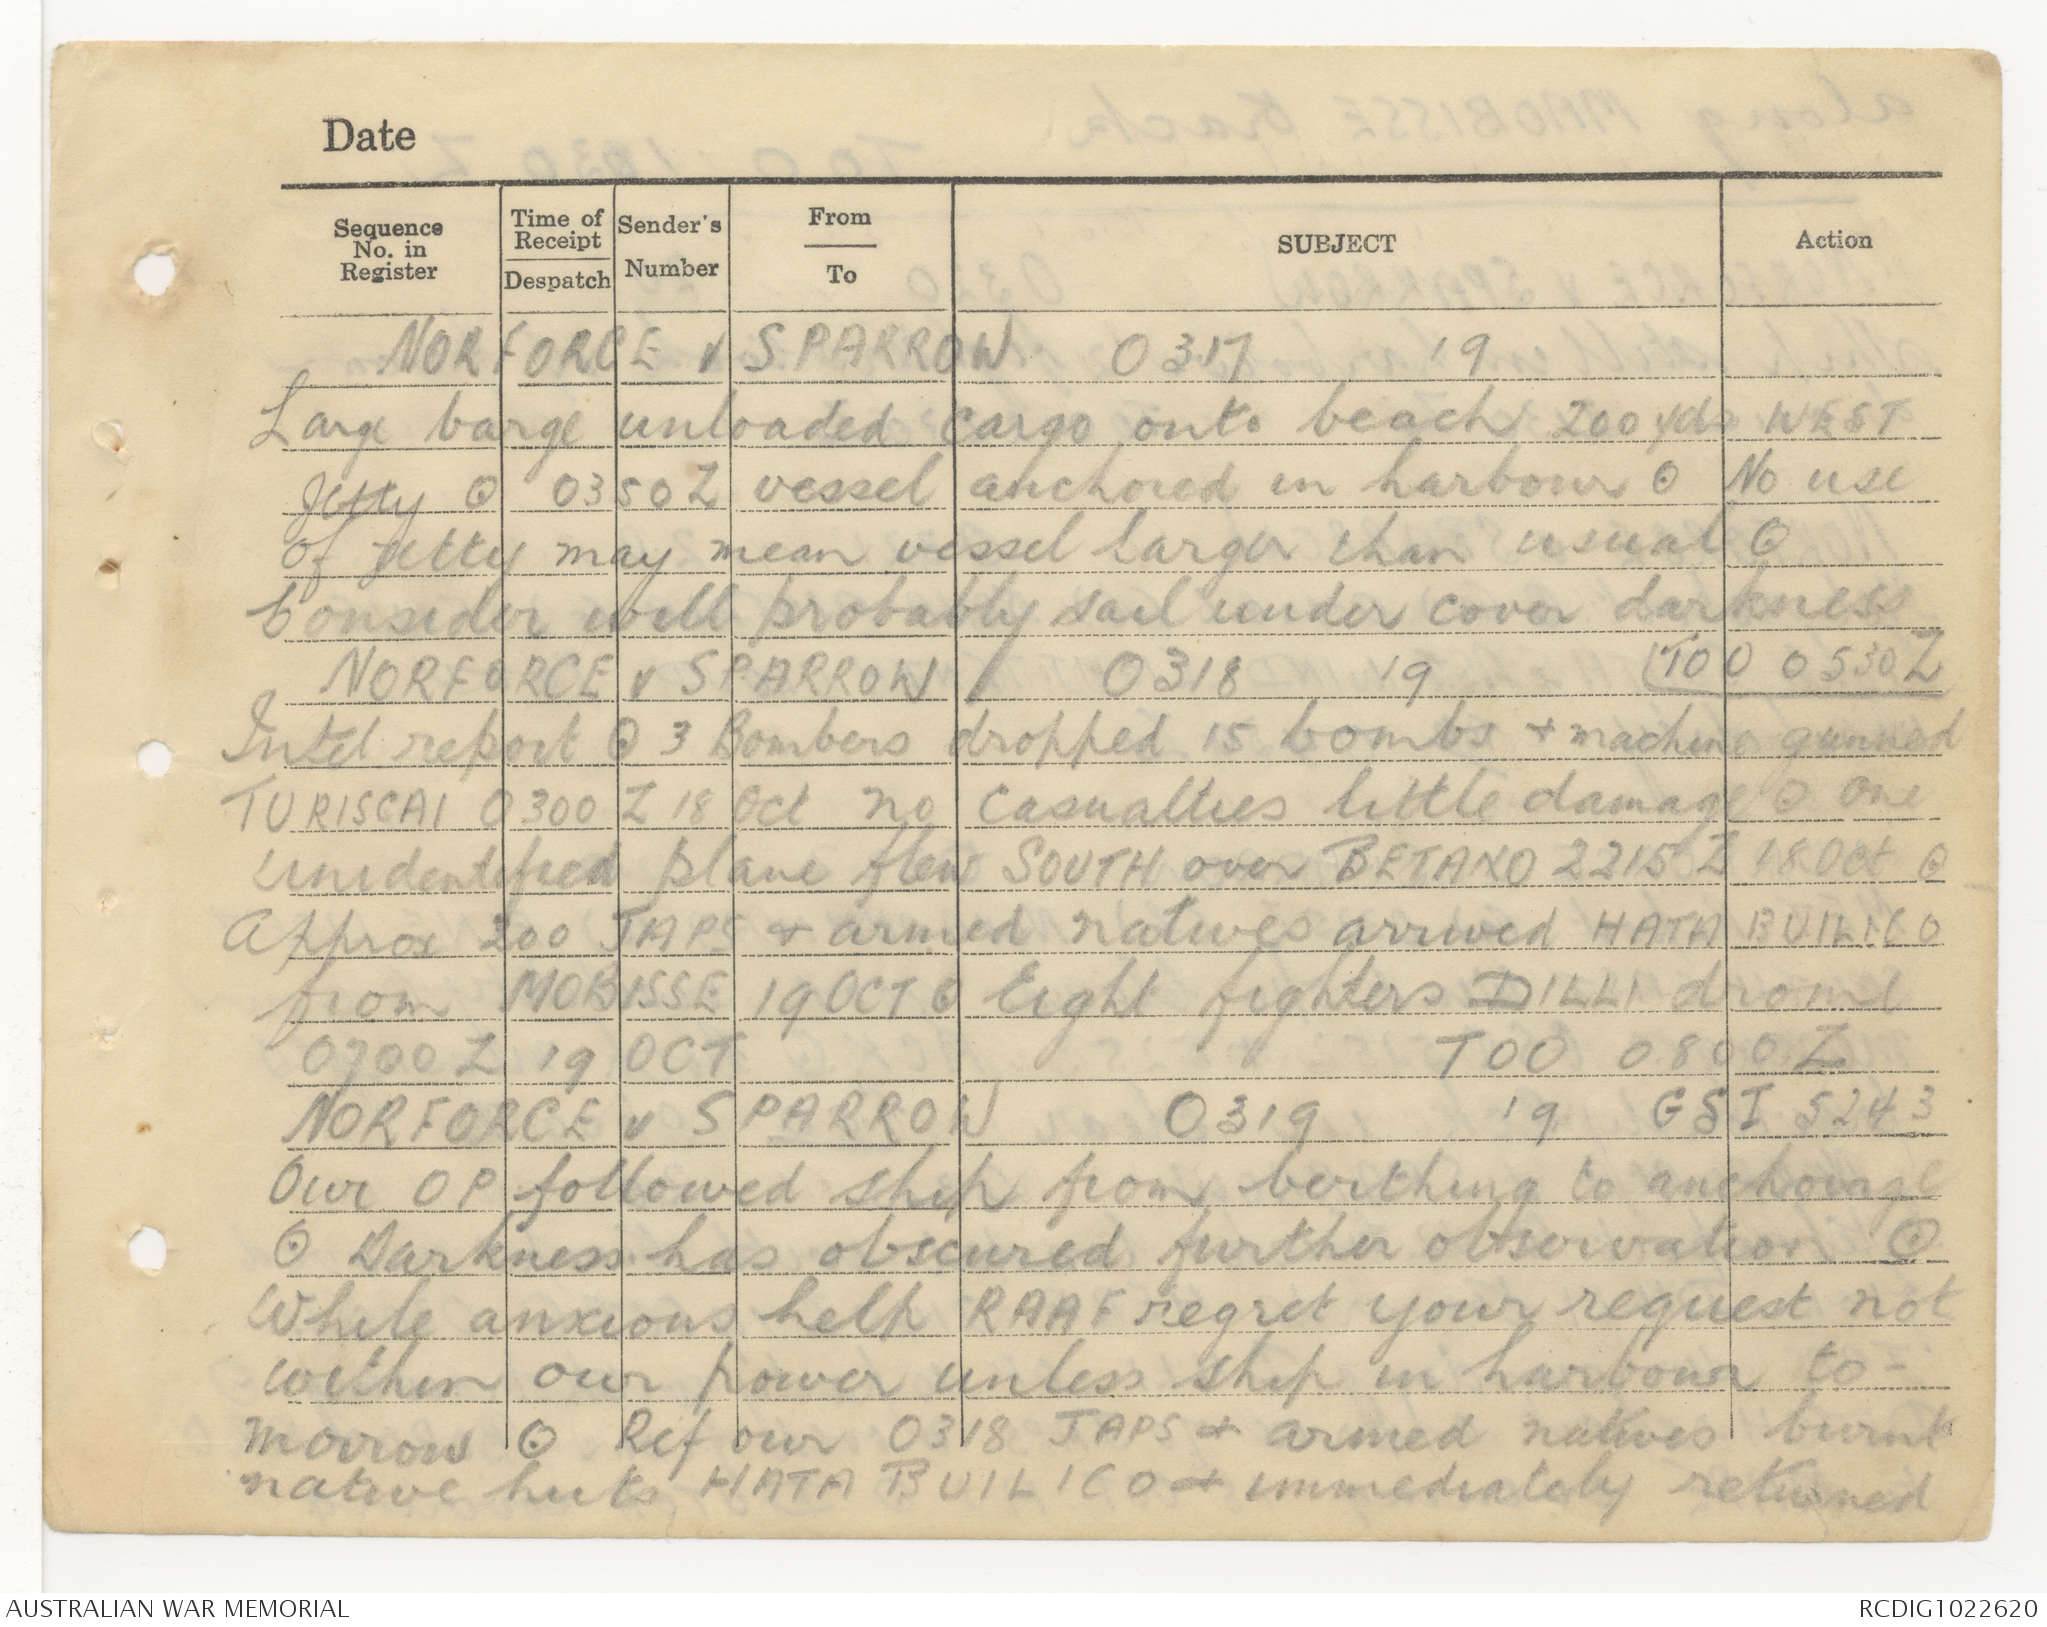 Date
Sequence No. in Register
Time of Receipt
Despatch
Sender's Number
From
To
SUBJECT
Action
NORFORCE v SPARROW 0317 19
Large barge unloaded cargo onto beach 200 yds WEST
Jetty ⊙ 0350Z vessel anchored in harbour ⊙ No use
of Jetty may mean vessel larger than usual ⊙
Consider will probably sail under cover darkness
NORFORCE v SPARROW 0318 19 TOO 0530Z
Intel report ⊙ 3 Bombers dropped 15 bombs + machine gunned
TURISCAI 0300 Z 18 Oct no casualties little damage ⊙ One
unidentified plane flew SOUTH over BETANO 2215 Z 18 Oct ⊙
Approx 200 JAPS + armed natives arrived HATA BUILICO
from MOBISSE 19 OCT ⊙ Eight fighters DILLI drome
0700 Z 19 OCT TOO 0800Z
NORFORCE v SPARROW 0319 19 GSI 5243
Our OP followed ship from berthing to anchorage
⊙ Darkness has obscured further observation ⊙
While anxious help RAAF regret your request not
within our power unless ship in harbour to-
morrow ⊙ Ref our 0318 JAPS + armed natives burnt
native huts HATA BUILICO + immediately returned
AUSTRALIAN WAR MEMORIAL
RCDIG1022620